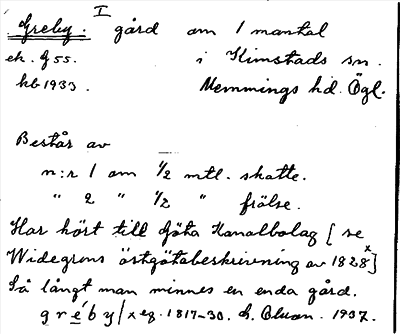 I
Greby. gård om 1 mantal
ek. g 55. i Kimstads sn.
kb 1933. Memmings hd. Ögl.
Består av
n:r 1 om 1/2 mtl. skatte.
" 2 " 1/2 " frälse.
Har hört till Göta Kanalbolag [se
Widegrens östgötabeskrivning av 1828 x]
Så långt man minnes en enda gård.
gréby / x eg. 1817-30. 1937.